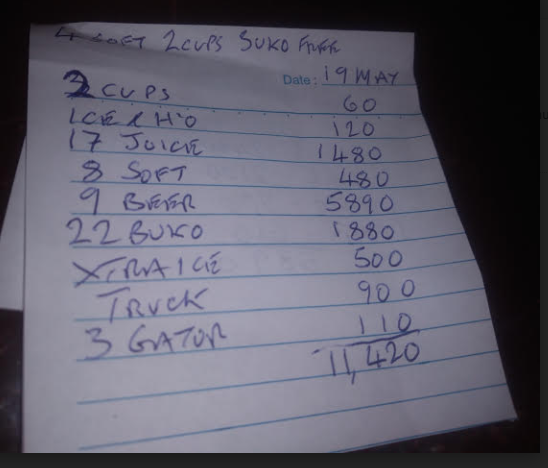 4 SOFT 2 CUPS BUKO FREE
Date: 19 MAY
2 CUPS 60
ICE & H2O 120
17 JUICE 1480
8 SOFT 480
9 BEER 5890
22 BUKO 1880
XTRA ICE 500
TRUCK 900
3 GATOR 110
11,420